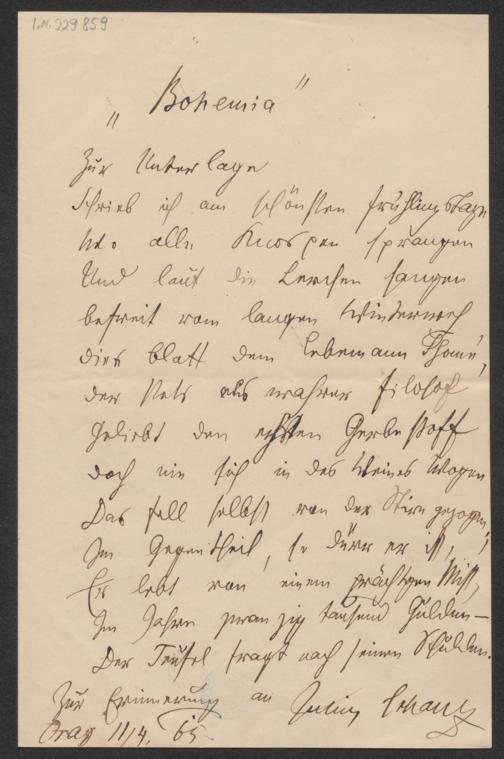 I.N. 229859
„Bohemia"
Zur Unterlage
schrieb ich am schönsten Frühlingstage
wo alle Knospen sprangen
Und laut die Lerchen sangen
befreit vom langen Winterweh
dies Blatt dem Lebemann Thomé,
der stets als wahrer Filosof
Geliebt den echten Gerbestoff
doch nie sich in des Weines Wogen
Das Fell selbst von der Stirn gezogen!
Im Gegentheil, so dürr er ist,
Er lebt von einem prächtgen Mist,
Im Jahre zwanzig tausend Gulden –
Der Teufel fragt nach seinen Schulden.
Zur Erinnerung an Julius
Prag 11/4. 65